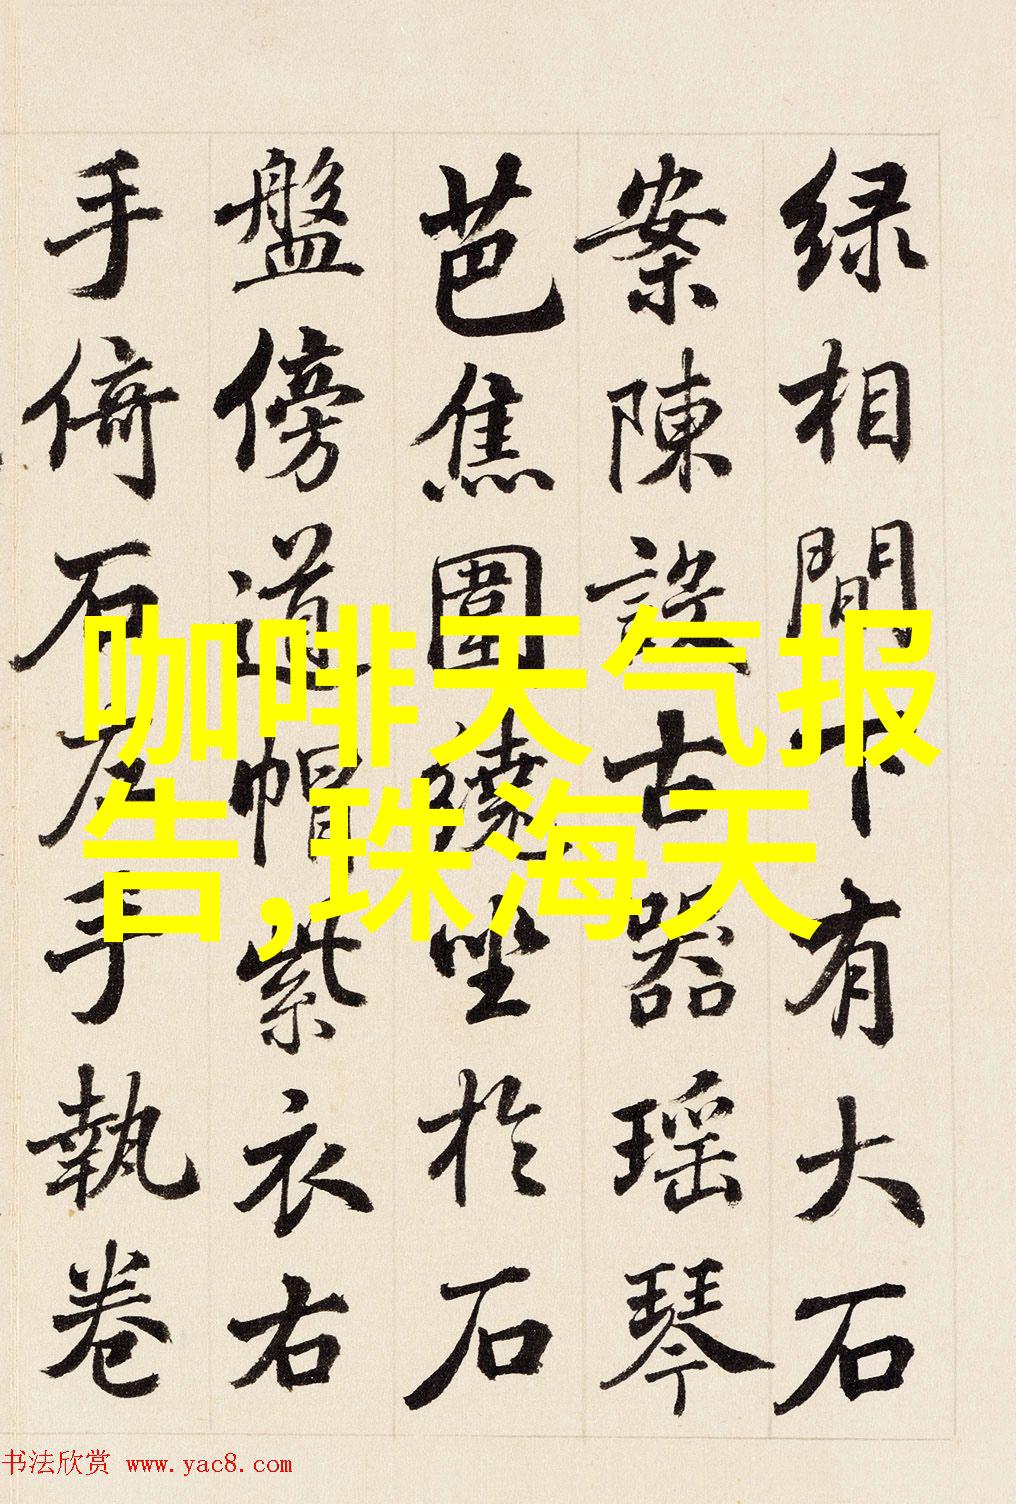 绿相間下有大石
案陳設古器瑶琴
芭焦圍繞坐於石
盤傍道帽紫衣右
手倚石左手執卷
咖啡天气报
告,珠海天
书法欣赏 www.yac8.com